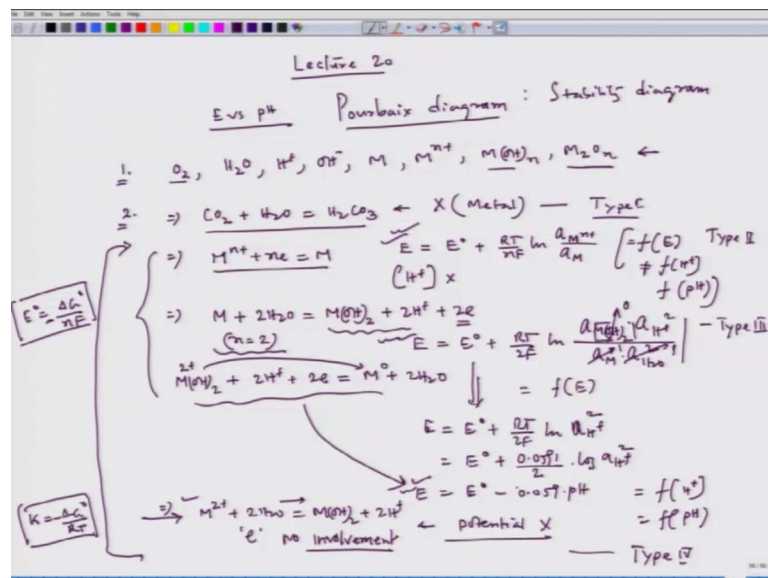 File Edit View Insert Actions Tools Help
Lecture 20
E vs pH Pourbaix diagram : Stability diagram
1. O₂, H₂O, H⁺, OH⁻, M, Mⁿ⁺, M(OH)ₙ, M₂Oₙ ←
2. ⇒ CO₂ + H₂O = H₂CO₃ ← X (Metal) — Type I
⇒ Mⁿ⁺ + ne = M E = E° + RT/nF ln a_Mⁿ⁺/a_M [= f(E) Type II
[H⁺] X ≠ f(H⁺)
f(pH)]
E° = -ΔG°/nF
⇒ M + 2H₂O = M(OH)₂ + 2H⁺ + 2e
(n=2) E = E° + RT/2F ln a_M(OH)₂ · a_H⁺²/a_M · a²_H₂O — Type III
2+ M(OH)₂ + 2H⁺ + 2e = M° + 2H₂O = f(E)
E = E° + RT/2F ln a_H⁺²
= E° + 0.0591/2 · log a_H⁺²
E = E° - 0.059 · pH = f(H⁺)
= f(pH)
K = -ΔG°/RT
⇒ M²⁺ + 2H₂O = M(OH)₂ + 2H⁺ ← potential X
'e' no involvement — Type IV